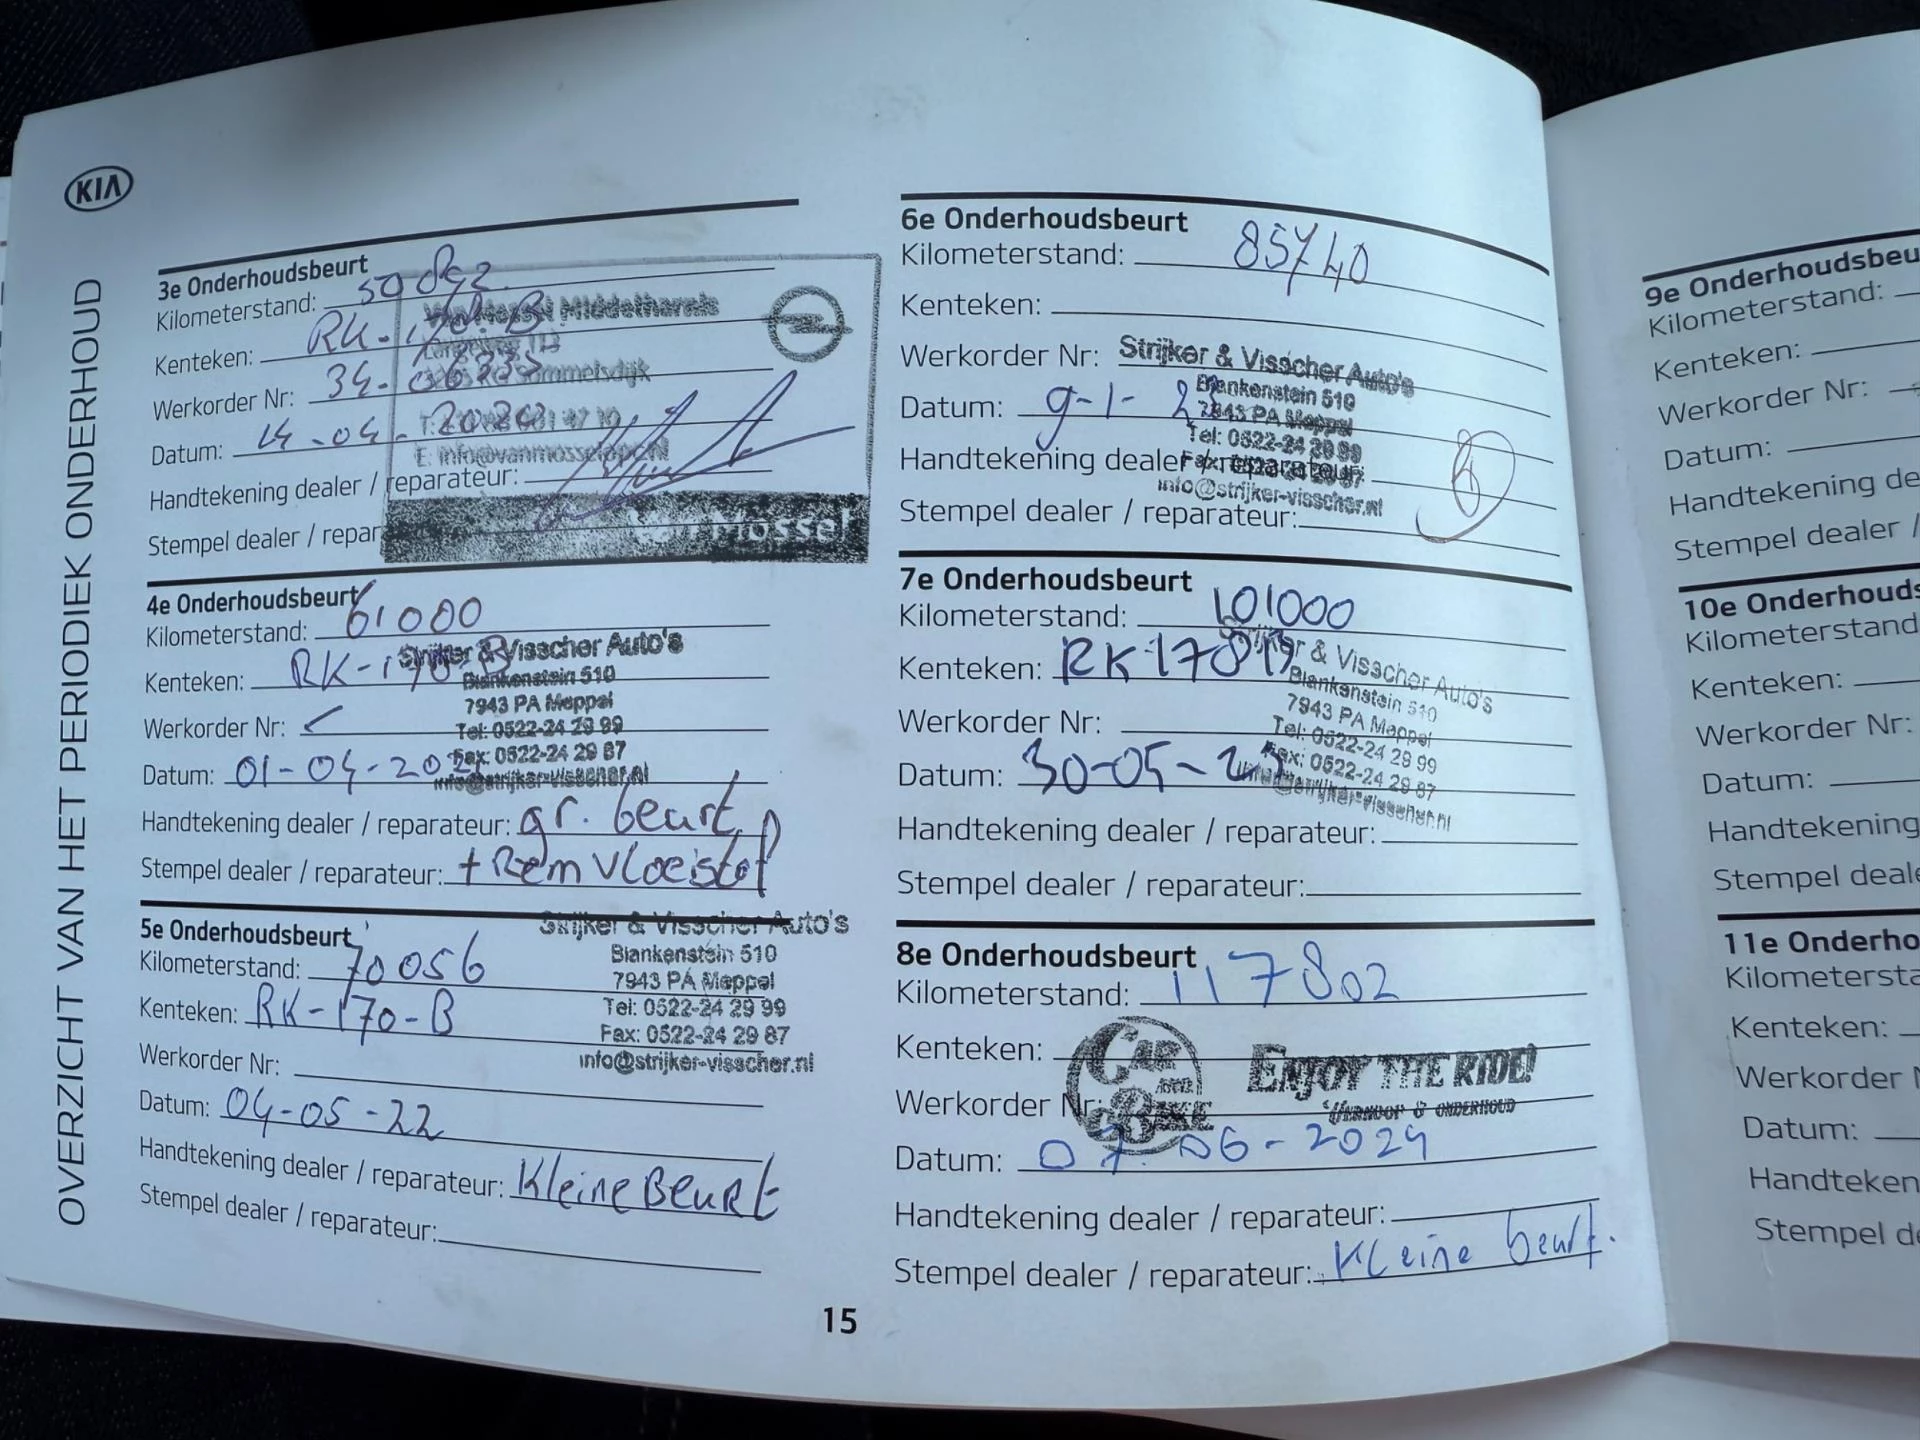 KIA
OVERZICHT VAN HET PERIODIEK ONDERHOUD
3e Onderhoudsbeurt
Kilometerstand: 50892
Kenteken: RK-170-B
Werkorder Nr: 34-
Datum: 14-04-2020
Handtekening dealer / reparateur:
Stempel dealer / repar
Middelharnis
Sommelsdijk
E: info@vanmosselopel.nl
Van Mossel
4e Onderhoudsbeurt
Kilometerstand: 61000
Kenteken: RK-170-B
Werkorder Nr:
Datum: 01-04-202
Handtekening dealer / reparateur: gr. beurt
Stempel dealer / reparateur: + Remvloeistof
Strijker & Visscher Auto's
Blankenstein 510
7943 PA Meppel
Tel: 0522-24 29 99
Fax: 0522-24 29 87
info@strijker-visscher.nl
5e Onderhoudsbeurt
Kilometerstand: 70056
Kenteken: RK-170-B
Werkorder Nr:
Datum: 04-05-22
Handtekening dealer / reparateur: Kleine Beurt
Stempel dealer / reparateur:
Strijker & Visscher Auto's
Blankenstein 510
7943 PA Meppel
Tel: 0522-24 29 99
Fax: 0522-24 29 87
info@strijker-visscher.nl
6e Onderhoudsbeurt
Kilometerstand: 85740
Kenteken:
Werkorder Nr:
Datum: 9-1-
Handtekening dealer / reparateur:
Stempel dealer / reparateur:
Strijker & Visscher Auto's
Blankenstein 510
7943 PA Meppel
Tel: 0522-24 29 99
info@strijker-visscher.nl
7e Onderhoudsbeurt
Kilometerstand: 101000
Kenteken: RK170B
Werkorder Nr:
Datum: 30-05-23
Handtekening dealer / reparateur:
Stempel dealer / reparateur:
Strijker & Visscher Auto's
Blankenstein 510
7943 PA Meppel
Tel: 0522-24 29 99
Fax: 0522-24 29 87
info@strijker-visscher.nl
8e Onderhoudsbeurt
Kilometerstand: 117802
Kenteken:
Werkorder Nr:
Datum: 07-06-2024
Handtekening dealer / reparateur:
Stempel dealer / reparateur: Kleine beurt.
CAR
BIKE
ENJOY THE RIDE!
VERKOOP & ONDERHOUD
15
9e Onderhoudsbeu
Kilometerstand:
Kenteken:
Werkorder Nr:
Datum:
Handtekening de
Stempel dealer /
10e Onderhouds
Kilometerstand
Kenteken:
Werkorder Nr:
Datum:
Handtekening
Stempel deale
11e Onderho
Kilometersta
Kenteken:
Werkorder N
Datum:
Handteken
Stempel de